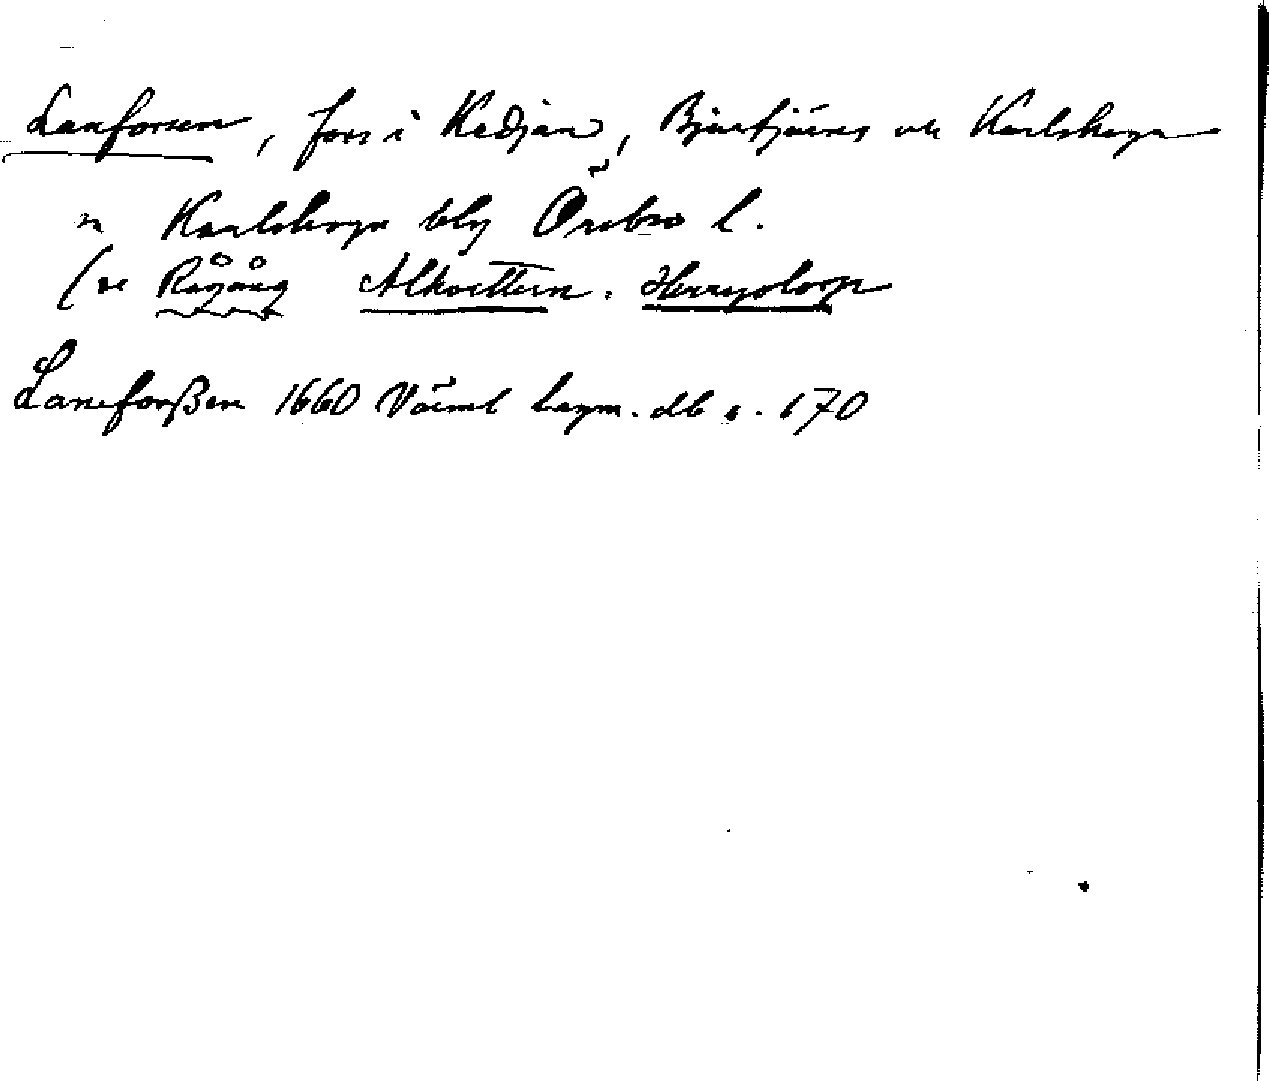 Laxforsen, fors i Kedjan, Bjurtjärns ok Karlskoga
sn Karlskoga blg Örebro l.
(se Rågång Alkvettern. Herrgdlogn
Laneforßen 1660 Värml lagm. db s. 170